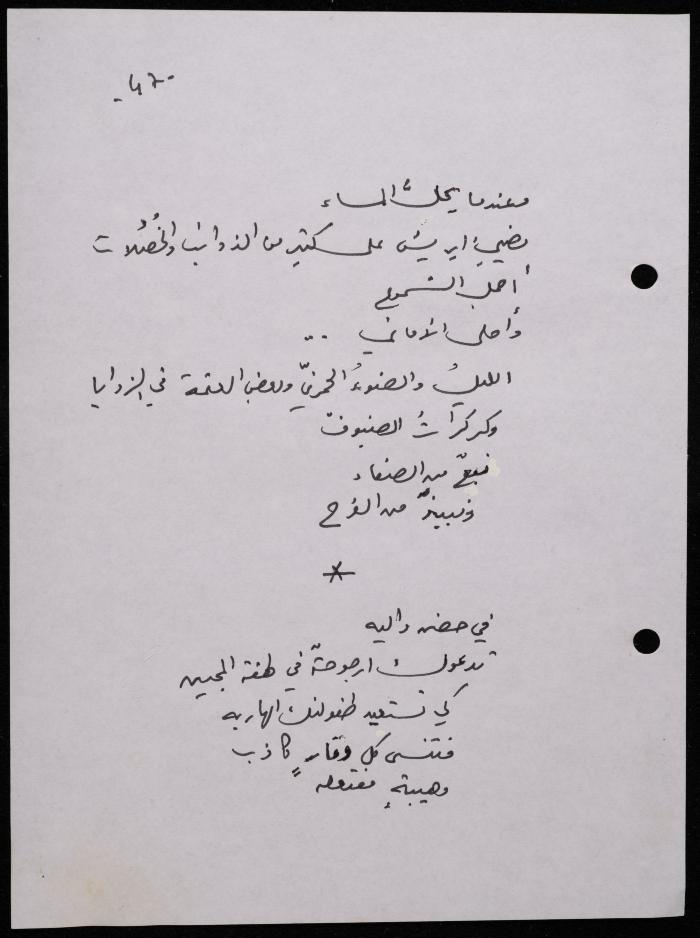 -٤٦-
وعندما يحلُّ المساء
يضيءُ ايريش على كثير من الذوائب والخُصُلات
أحلى الشموع
وأحلى الأماني ..
الليلُ والضوءُ الخمريّ وبعض العتمة في الزوايا
وكركراتُ الضيوف
نبعٌ من الصفاء
ونبيذٌ من الفرح
*
في حضن دالية
تدعوك ارجوحةٌ في لهفة المحبين
كي تستعيد طفولتك الهاربه
فتنسى كل وقارٍ كاذب
وهيبةٍ مفتعله